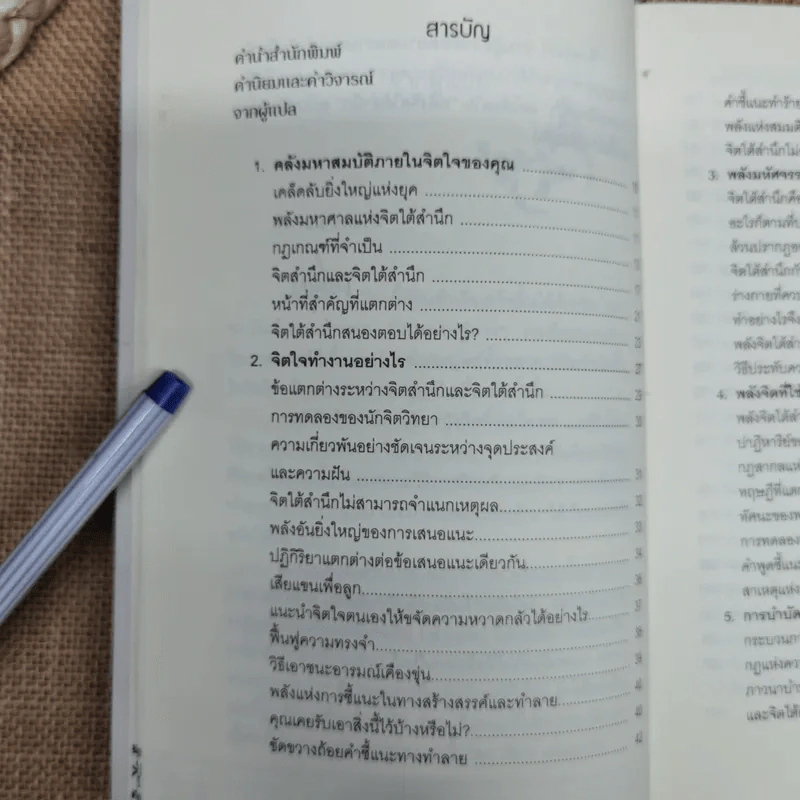 สารบัญ
คำนำสำนักพิมพ์
คำนิยมและคำวิจารณ์
จากผู้แปล
1. คลังมหาสมบัติภายในจิตใจของคุณ
เคล็ดลับยิ่งใหญ่แห่งยุค
พลังมหาศาลแห่งจิตใต้สำนึก
กฎเกณฑ์ที่จำเป็น
จิตสำนึกและจิตใต้สำนึก
หน้าที่สำคัญที่แตกต่าง
จิตใต้สำนึกสนองตอบได้อย่างไร?
2. จิตใจทำงานอย่างไร
ข้อแตกต่างระหว่างจิตสำนึกและจิตใต้สำนึก
การทดลองของนักจิตวิทยา
ความเกี่ยวพันอย่างชัดเจนระหว่างจุดประสงค์
และความฝัน
จิตใต้สำนึกไม่สามารถจำแนกเหตุผล
พลังอันยิ่งใหญ่ของการเสนอแนะ
ปฏิกิริยาแตกต่างต่อข้อเสนอแนะเดียวกัน
เสียแขนเพื่อลูก
แนะนำจิตใจตนเองให้ขจัดความหวาดกลัวได้อย่างไร
ฟื้นฟูความทรงจำ
วิธีเอาชนะอารมณ์เคืองขุ่น
พลังแห่งการชี้แนะในทางสร้างสรรค์และทำลาย
คุณเคยรับเอาสิ่งนี้ไว้บ้างหรือไม่?
ขัดขวางถ้อยคำชี้แนะทางทำลาย
คำชี้แนะทำร้าย
พลังแห่งสมมติ
จิตใต้สำนึกไม่
3. พลังมหัศจรร
จิตใต้สำนึกคือ
อะไรก็ตามที่ป
ล้วนปรากฏออ
จิตใต้สำนึกกับ
ร่างกายที่ควร
ทำอย่างไรจึง
พลังจิตใต้สำ
วิธีประทับคว
4. พลังจิตที่ใช้
พลังจิตใต้สำ
ปาฏิหาริย์ข
กฎสากลแห่
ทฤษฎีที่แต
ทัศนะของพ
การทดลอง
คำพูดชี้แน
สาเหตุแห่ง
5. การบำบัด
กระบวนกา
กฎแห่งควา
ภาวนาบำ
และจิตใต้